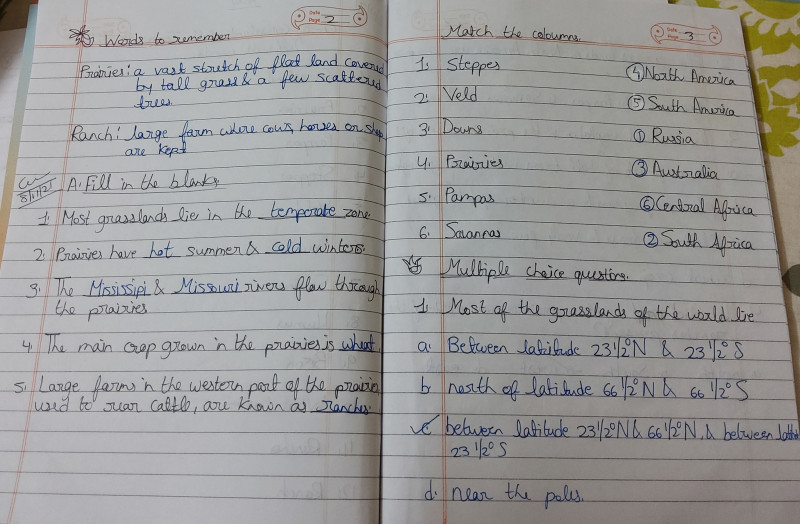 Date
Page 2
Words to remember
Prairies: a vast stretch of flat land covered
by tall grass & a few scattered
trees.
Ranch: large farm where cows, horses or sheep
are kept
CW
8/11/21
A. Fill in the blanks
1. Most grasslands lie in the temperate zone
2. Prairies have hot summer & cold winters.
3. The Missisipi & Missouri rivers flow through
the prairies
4. The main crop grown in the prairies is wheat.
5. Large farms in the western part of the prairies
used to rear cattle, are known as ranches.
Date
Page 3
Match the coloumns.
1. Steppes ④ North America
2. Veld ⑤ South America
3. Downs ① Russia
4. Prairies ③ Australia
5. Pampas ⑥ Central Africa
6. Savannas ② South Africa
Multiple choice questions.
1. Most of the grasslands of the world lie
a. Between latitude 23 1/2° N & 23 1/2° S
b north of latitude 66 1/2° N & 66 1/2° S
c between latitude 23 1/2° N & 66 1/2° N, & between
23 1/2° S
d. near the poles.